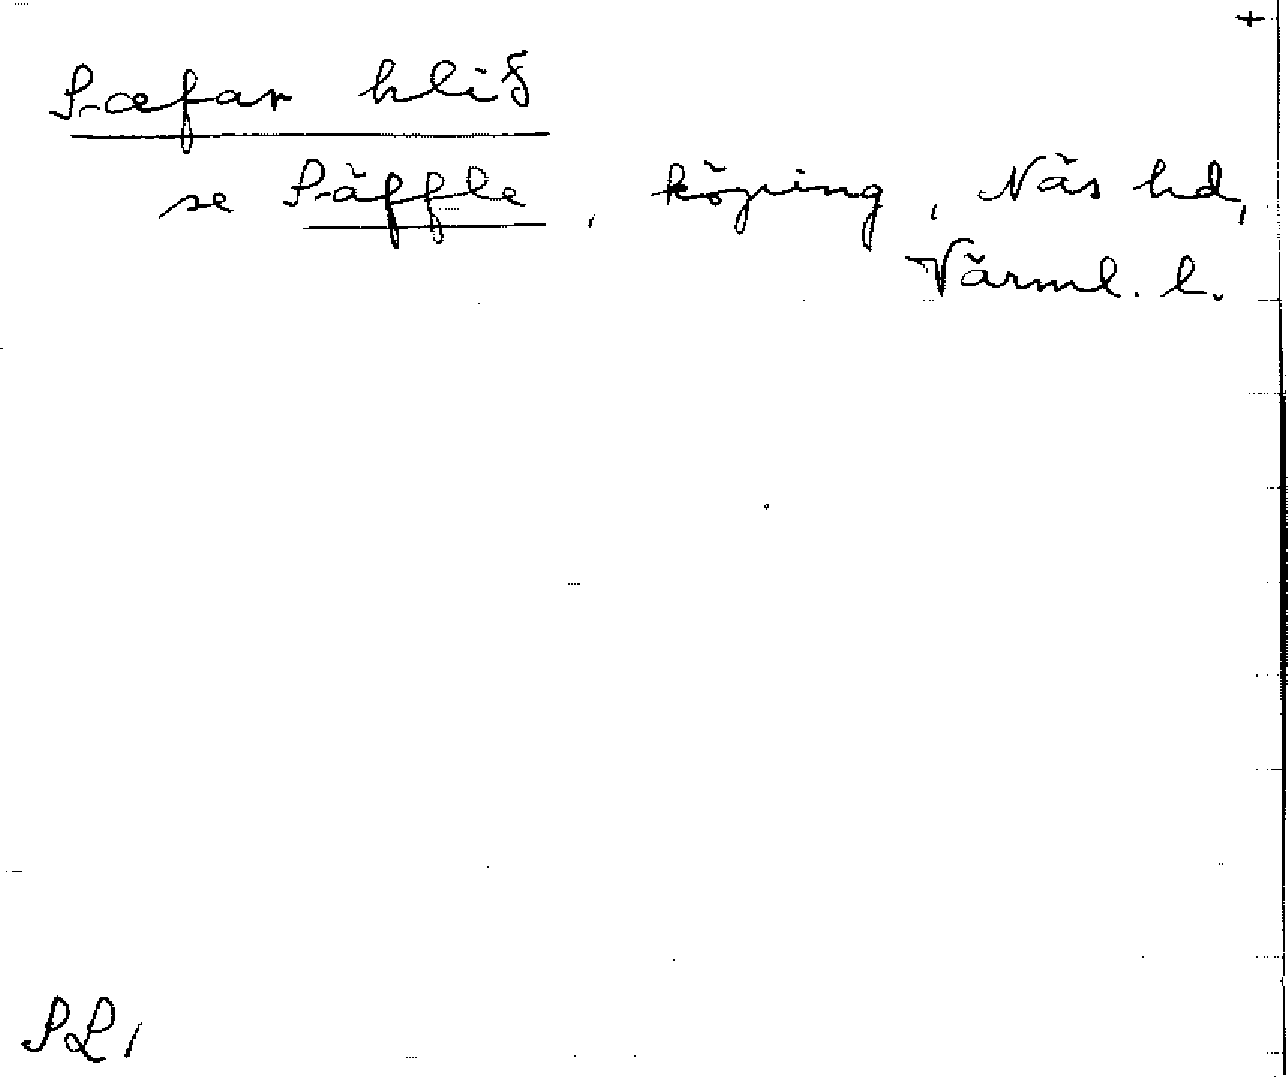 +
Sæfar hlið
se Säffle, köping, Näs hd,
Värml. l.